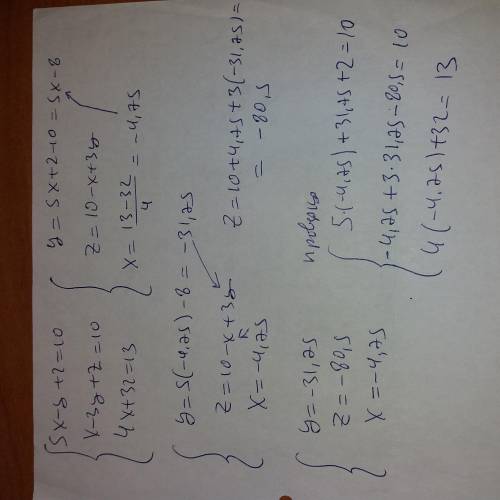 5x-y+2=10
x-3y+z=10
4x+32=13
y=5x+2-10=5x-8
z=10-x+3y
x=13-32/4=-4,75
y=5(-4,75)-8=-31,75
z=10-x+3y
x=-4,75
z=10+4,75+3(-31,75)=
=-80,5
y=-31,75
z=-80,5
x=-4,75
проверка
5·(-4,75)+31,75+2=10
-4,75+3·31,75-80,5=10
4(-4,75)+32=13